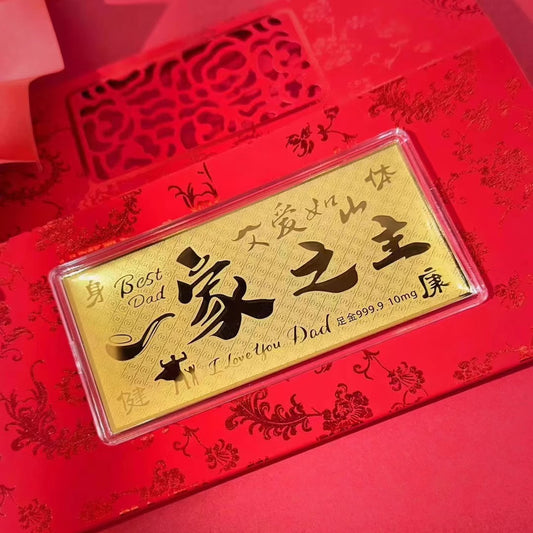 父爱如山
身 体
Best
Dad
一家之主
I Love You Dad
足金999.9 10mg
健 康